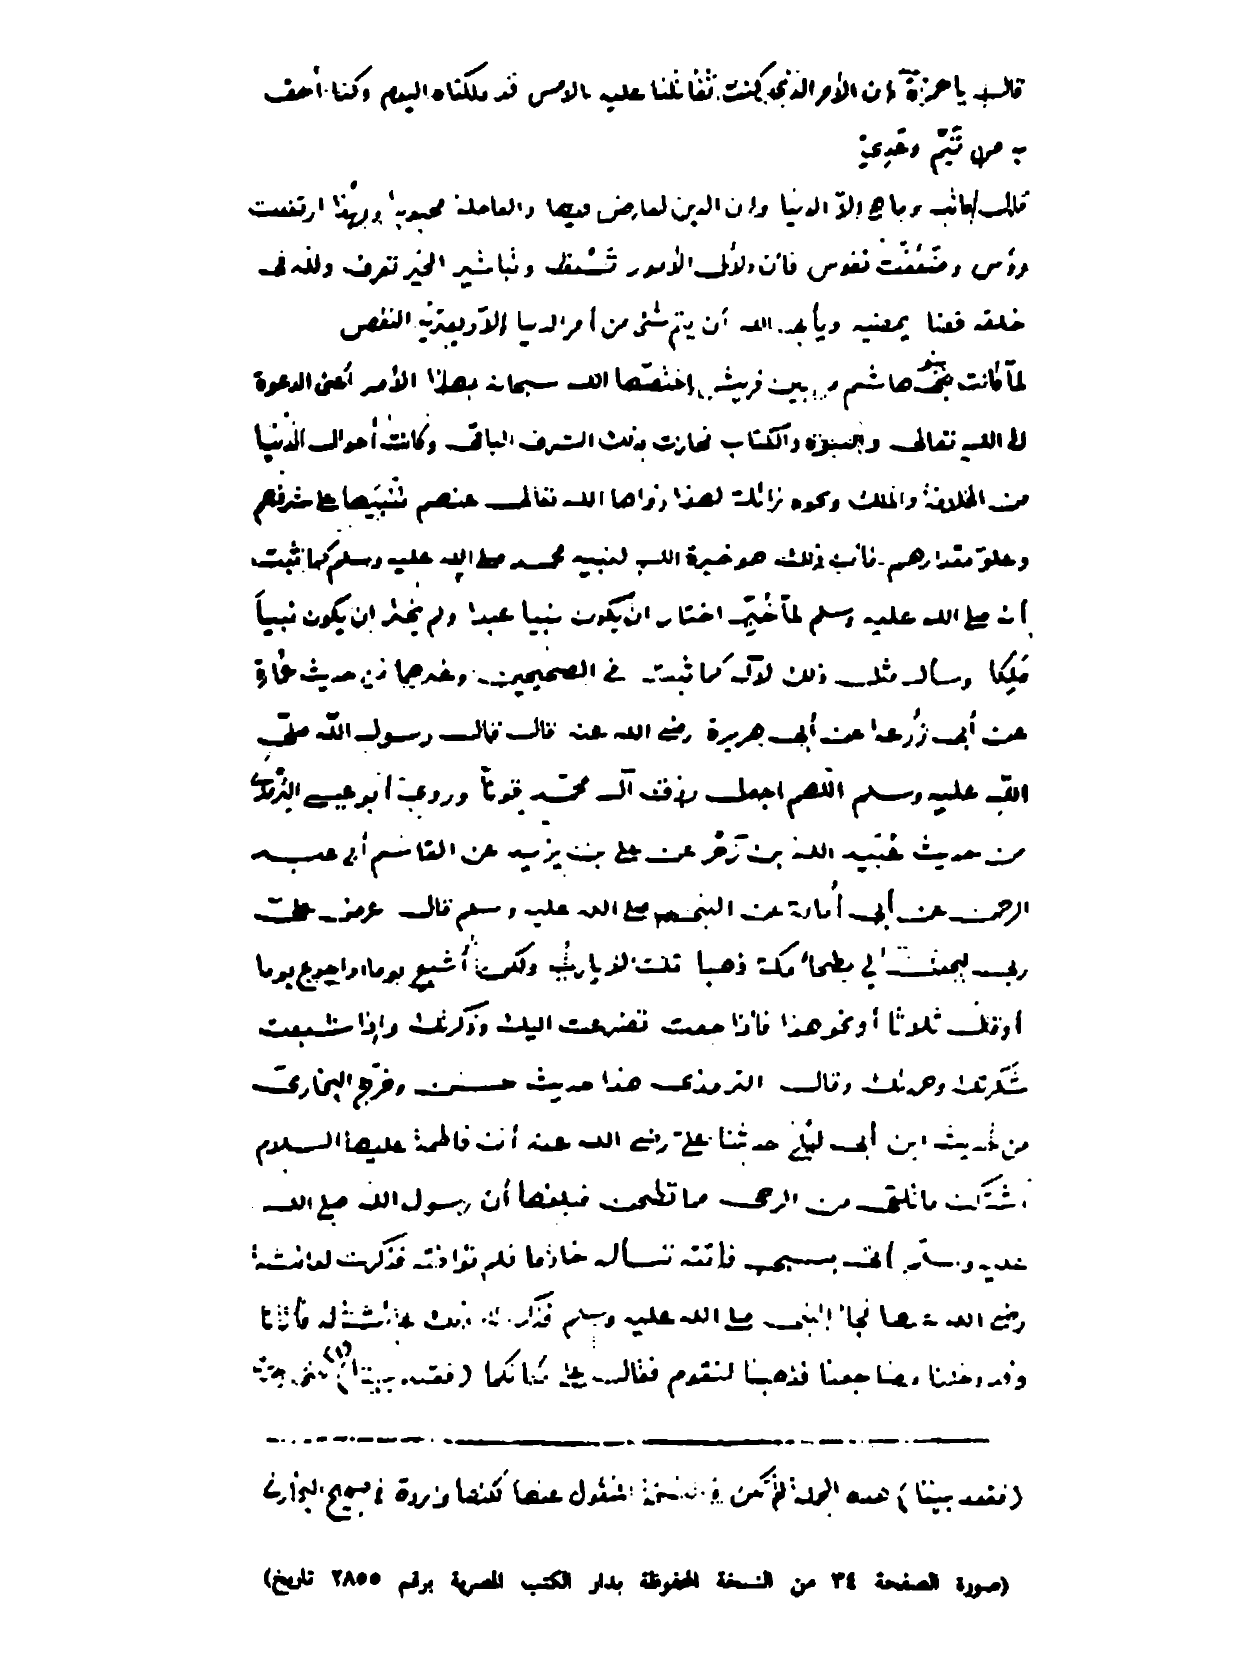 قال يا حمزة إن الأمر الذي كنت تقاتلنا عليه بالأمس قد ملكناه اليوم وكنا أحق
به من تَيْم وعَدِيّ
وما هي إلاّ الدنيا وان الدين لعارض فيها والعاجلة محبوبة وبهذا ارتفعت
رؤس وضَعُفَت نفوس فان دلائل الأمور تسبق وتباشير الخير تعرف ولله في
خلقه قضاء يمضيه ويأبى الله أن يتم شئ من أمر الدنيا إلاّ ويعتريه النقص
لمّا كانت بنو هاشم من بين قريش اختصّها الله سبحانه بهذا الأمر أعنى الدعوة
الى الله تعالى والنبوّة والكتاب فحازت بذلك الشرف الباقى وكانت أحوال الدنيا
من الخلافة والملك ونحوه زائلة لهذا زواها الله تعالى عنهم تنبيها على شرفهم
وعلوّ مقدارهم فان ذلك هو خيرة الله لنبيه محمد صلى الله عليه وسلم كما ثبت
أنه صلى الله عليه وسلم لمّا خُيّر اختار ان يكون نبيا عبدا ولم يختر ان يكون نبياً
مَلِكا وسأل مثل ذلك لآله كما ثبت في الصحيحين وغيرهما من حديث عُمارة
عن أبى زُرعة عن أبى هريرة رضى الله عنه قال قال رسول الله صلّى
الله عليه وسلم اللهم اجعل رزق آل محمّد قوتاً وروى أبو عيسى الترمذى
من حديث عُبَيد الله بن زَحْر عن على بن يزيد عن القاسم أبى عبد
الرحمن عن أبى أُمامة عن النبى صلى الله عليه وسلم قال عرض علىّ
ربى ليجعل لي بطحاء مكة ذهبا قلت لا يا ربّ ولكن أُشبع يوما وأجوع يوما
أو قال ثلاثا أو نحو هذا فاذا جعت تضرعت اليك وذكرتك وإذا شبعت
شَكَرتك وحمدتك وقال الترمذى هذا حديث حسن وخرّج البخارىّ
من حديث ابن أبى ليْلى حدثنا علىّ رضى الله عنه أن فاطمة عليها السلام
اشتَكَت ما تلقى من الرحى مما تطحن فبلغها أن رسول الله صلى الله
عليه وسلّم أتى بسبى فأتته تسأله خادما فلم توافقه فذكرت لعائشة
رضى الله عنها فجاء النبى صلى الله عليه وسلم فذكرت ذلك عائشة له فأتانا
وقد دخلنا مضاجعنا فذهبنا لنقوم فقال على مكانكما (فقعد بيننا)(١) حتى وجدت
(فقعد بيننا) هذه الجملة لم تكن في النسخة المنقول عنها لكنها واردة في صحيح البخارى
(صورة الصفحة ٣٤ من النسخة المحفوظة بدار الكتب المصرية برقم ٢٨٥٥ تاريخ)